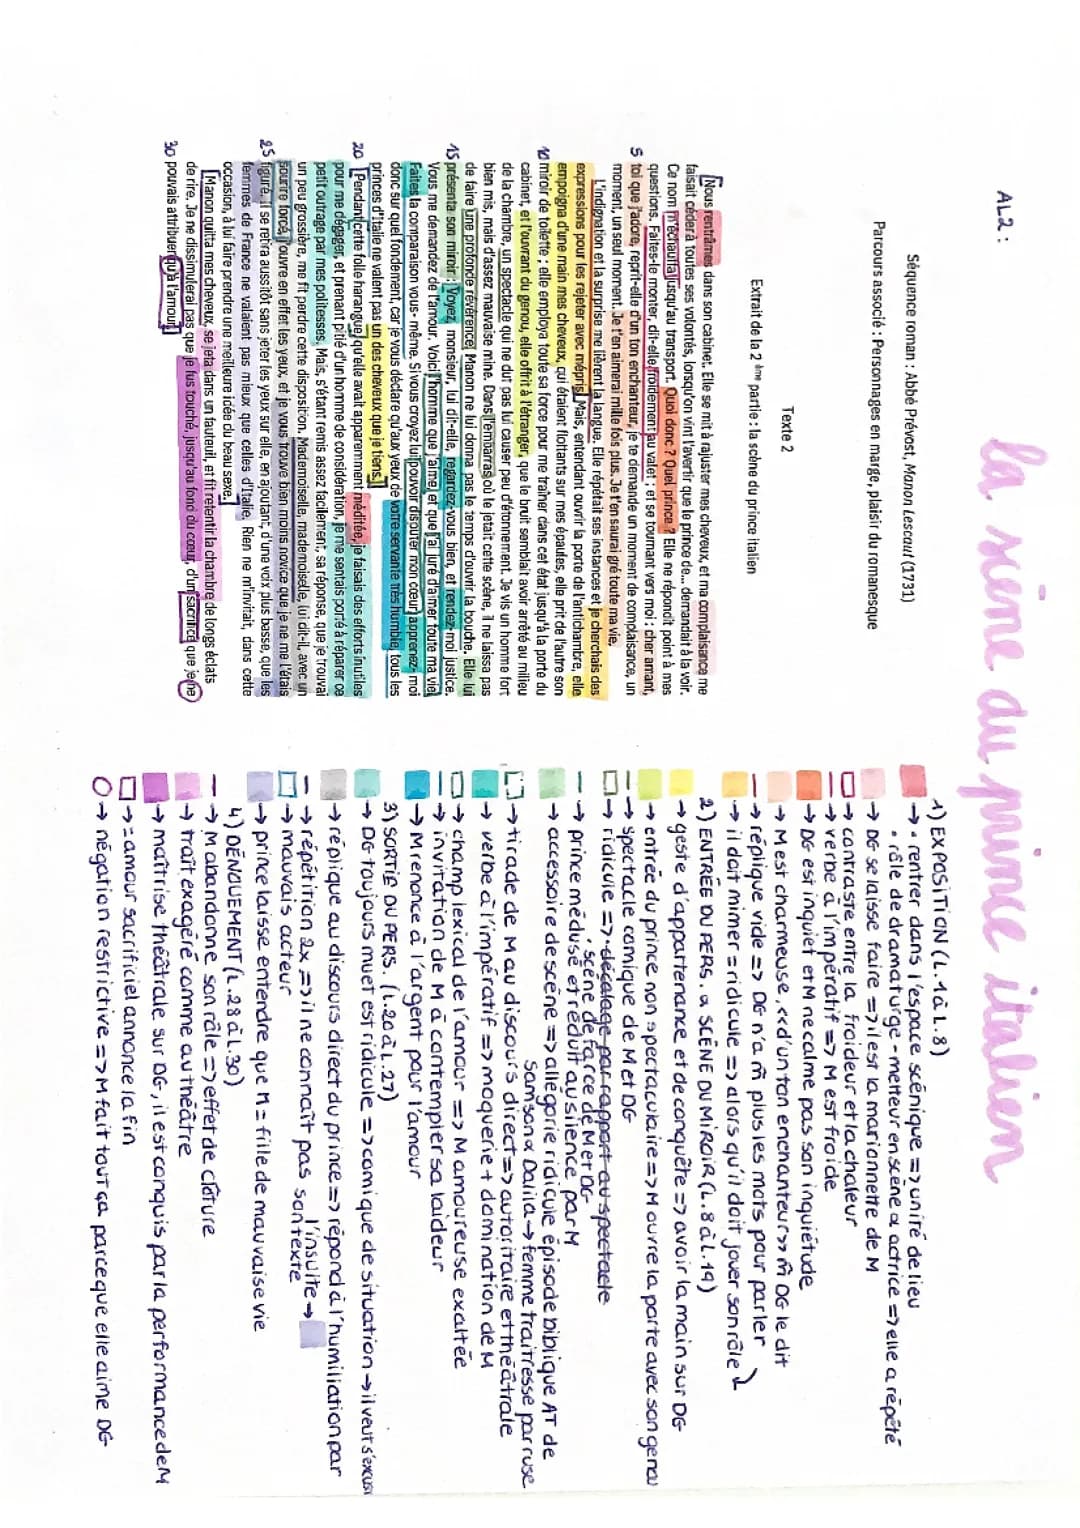 AL2 :
la scène du prince italien
Séquence roman : Abbé Prévost, Manon Lescaut (1731)
Parcours associé : Personnages en marge, plaisir du romanesque
Texte 2
Extrait de la 2 ème partie : la scène du prince italien
[Nous rentrâmes dans son cabinet. Elle se mit à rajuster mes cheveux, et ma complaisance me
faisait céder à toutes ses volontés, lorsqu'on vint l'avertir que le prince de... demandait à la voir.
Ce nom m'échauffa jusqu'au transport. Quoi donc ? Quel prince ? Elle ne répondit point à mes
questions. Faites-le monter, dit-elle froidement au valet ; et se tournant vers moi : cher amant,
5 toi que j'adore, reprit-elle d'un ton enchanteur, je te demande un moment de complaisance, un
moment, un seul moment. Je t'en aimerai mille fois plus. Je t'en saurai gré toute ma vie.
L'indignation et la surprise me lièrent la langue. Elle répétait ses instances et je cherchais des
expressions pour les rejeter avec mépris.] Mais, entendant ouvrir la porte de l'antichambre, elle
empoigna d'une main mes cheveux, qui étaient flottants sur mes épaules, elle prit de l'autre son
10 miroir de toilette ; elle employa toute sa force pour me traîner dans cet état jusqu'à la porte du
cabinet, et l'ouvrant du genou, elle offrit à l'étranger, que le bruit semblait avoir arrêté au milieu
de la chambre, un spectacle qui ne dut pas lui causer peu d'étonnement. Je vis un homme fort
bien mis, mais d'assez mauvaise mine. Dans l'embarras où le jetait cette scène, il ne laissa pas
de faire une profonde révérence. Manon ne lui donna pas le temps d'ouvrir la bouche. Elle lui
15 présenta son miroir : Voyez, monsieur, lui dit-elle, regardez-vous bien, et rendez-moi justice.
Vous me demandez de l'amour. Voici l'homme que j'aime, et que j'ai juré d'aimer toute ma vie.
Faites la comparaison vous- même. Si vous croyez lui pouvoir disputer mon cœur, apprenez- moi
donc sur quel fondement, car je vous déclare qu'aux yeux de votre servante très humble, tous les
princes d'Italie ne valent pas un des cheveux que je tiens.]
20 [Pendant cette folle harangue, qu'elle avait apparemment méditée, je faisais des efforts inutiles
pour me dégager, et prenant pitié d'un homme de considération, je me sentais porté à réparer ce
petit outrage par mes politesses. Mais, s'étant remis assez facilement, sa réponse, que je trouvai
un peu grossière, me fit perdre cette disposition. Mademoiselle, mademoiselle, lui dit-il, avec un
sourire forcé, j'ouvre en effet les yeux, et je vous trouve bien moins novice que je ne me l'étais
25 figuré. Il se retira aussitôt sans jeter les yeux sur elle, en ajoutant, d'une voix plus basse, que les
femmes de France ne valaient pas mieux que celles d'Italie. Rien ne m'invitait, dans cette
occasion, à lui faire prendre une meilleure idée du beau sexe.]
[Manon quitta mes cheveux, se jeta dans un fauteuil, et fit retentir la chambre de longs éclats
de rire. Je ne dissimulerai pas que je fus touché, jusqu'au fond du cœur, d'un sacrifice que je ne
30 pouvais attribuer qu'à l'amour.]
1) EXPOSITION (L.1 à L.8)
→ • rentrer dans l'espace scénique => unité de lieu
• rôle de dramaturge - metteur en scène α actrice => elle a répété
→ DG se laisse faire => il est la marionnette de M
→ contraste entre la froideur et la chaleur
→ verbe à l'impératif => M est froide
→ DG est inquiet et M ne calme pas son inquiétude
→ M est charmeuse, <<d'un ton enchanteur>> m̂ DG le dit
→ réplique vide => DG n'a m̂ plus les mots pour parler
→ il doit mimer = ridicule => alors qu'il doit jouer son rôle
2) ENTRÉE DU PERS. α SCÈNE DU MIROIR (L.8 à L.19)
→ geste d'appartenance et de conquête => avoir la main sur DG
→ entrée du prince non spectaculaire => M ouvre la porte avec son genou
→ spectacle comique de M et DG
→ ridicule => • décalage par rapport au spectacle
• scène de farce de M et DG
→ prince médusé et réduit au silence par M
→ accessoire de scène => allégorie ridicule épisode biblique AT de
Samson α Dalila → femme traîtresse par ruse
→ tirade de M au discours direct => autoritaire et théâtrale
→ verbe à l'impératif => moquerie + domination de M
→ champ lexical de l'amour => M amoureuse exaltée
→ invitation de M à contempler sa laideur
→ M renonce à l'argent pour l'amour
3) SORTIE DU PERS. (L.20 à L.27)
→ DG toujours muet est ridicule => comique de situation → il veut s'excuser
→ réplique au discours direct du prince => répond à l'humiliation par
l'insulte →
→ répétition 2x => il ne connaît pas son texte
→ mauvais acteur
→ prince laisse entendre que M = fille de mauvaise vie
4) DÉNOUEMENT (L.28 à L.30)
→ M abandonne son rôle => effet de clôture
→ trait exagéré comme au théâtre
→ maîtrise théâtrale sur DG, il est conquis par la performance de M
→ = amour sacrificiel annonce la fin
→ négation restrictive => M fait tout ça parce que elle aime DG